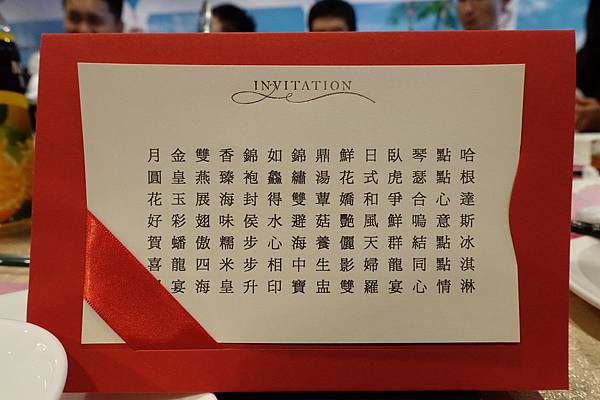 INVITATION
月圓花好賀喜
金皇玉彩蟠龍宴
雙燕展翅傲四海
香臻海味糯米皇
錦袍封侯步步升
如鱻得水心相印
錦繡雙避海中寶
鼎湯蕈菇養生盅
鮮花嬌艷儷影雙
日式和風天婦羅
臥虎爭鮮群龍宴
琴瑟合嗚結同心
點點心意點點情
哈根達斯冰淇淋